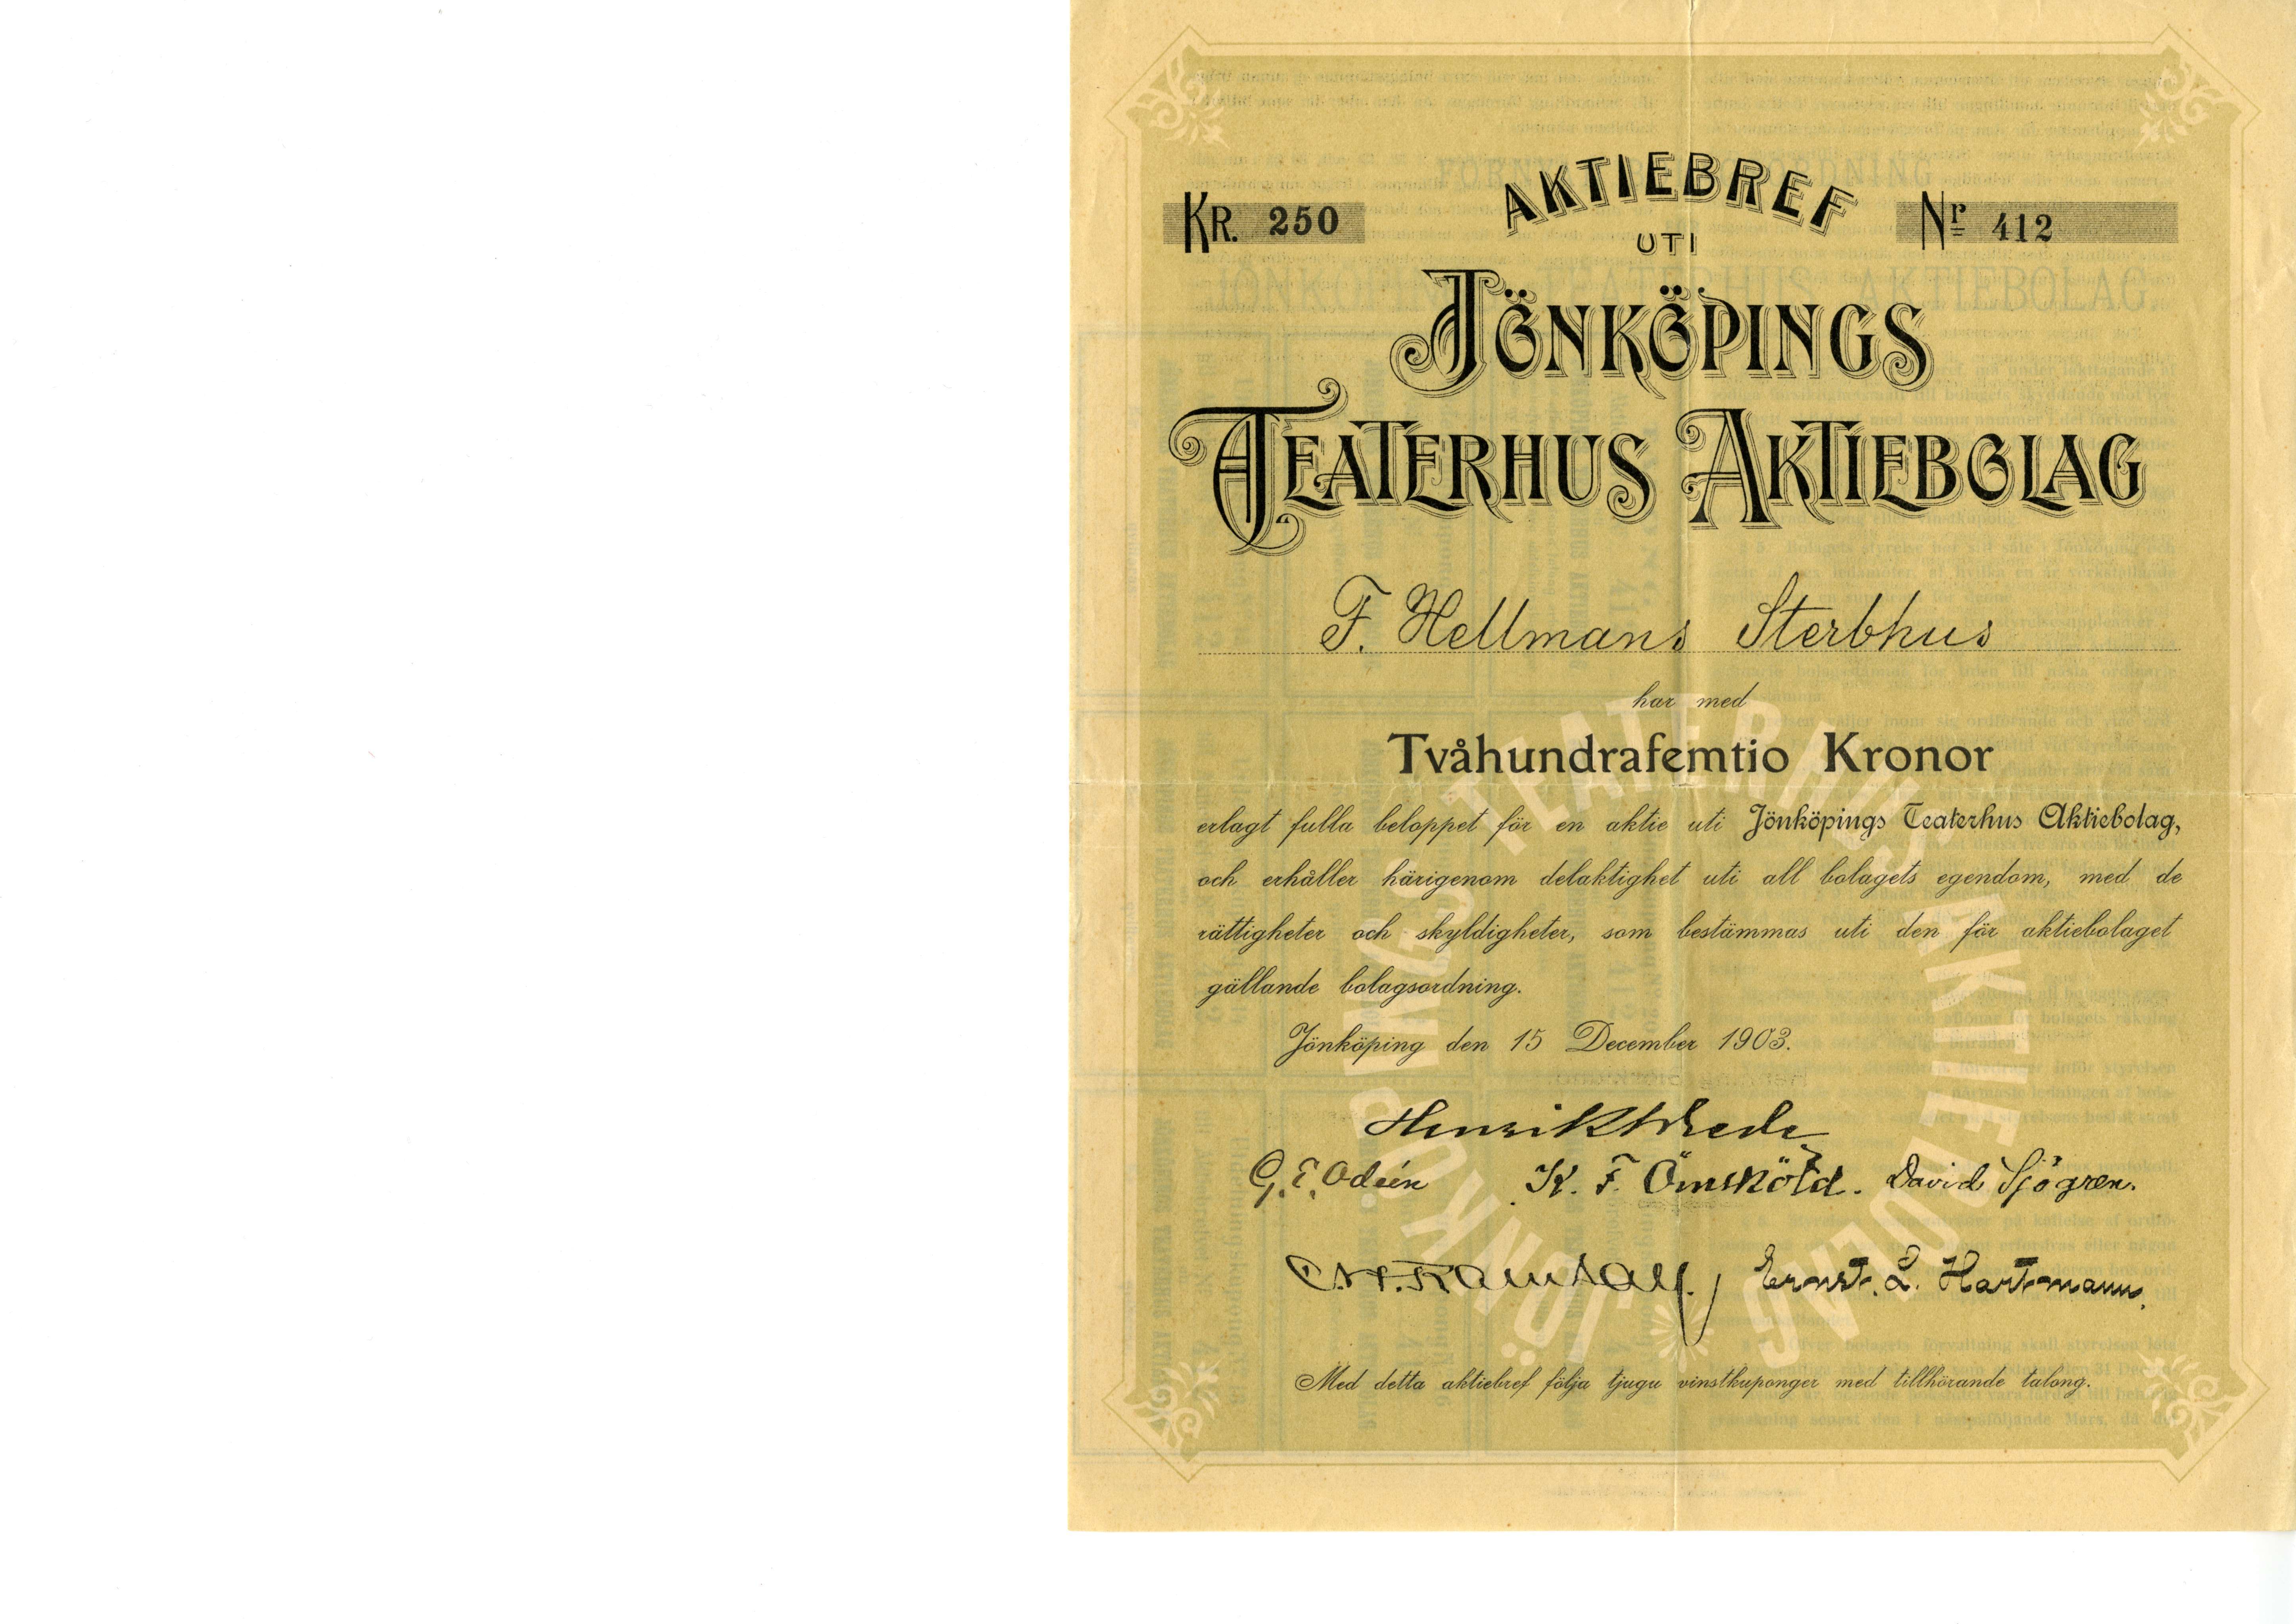 AKTIEBREF
KR. 250
Nr 412
UTI
JÖNKÖPINGS
TEATERHUS AKTIEBOLAG
F. Hellmans Sterbhus
har med
Tvåhundrafemtio Kronor
erlagt fulla beloppet för en aktie uti Jönköpings Teaterhus Aktiebolag,
och erhåller härigenom delaktighet uti all bolagets egendom, med de
rättigheter och skyldigheter, som bestämmas uti den för aktiebolaget
gällande bolagsordning.
Jönköping den 15 December 1903.
Henrik Wrede
G. E. Odéen K. F. Örnsköld. David Sjögren.
Ernst. L. Hartmann.
Med detta aktiebref följa tjugu vinstkuponger med tillhörande talong.
JÖNKÖPINGS TEATERHUS AKTIEBOLAG